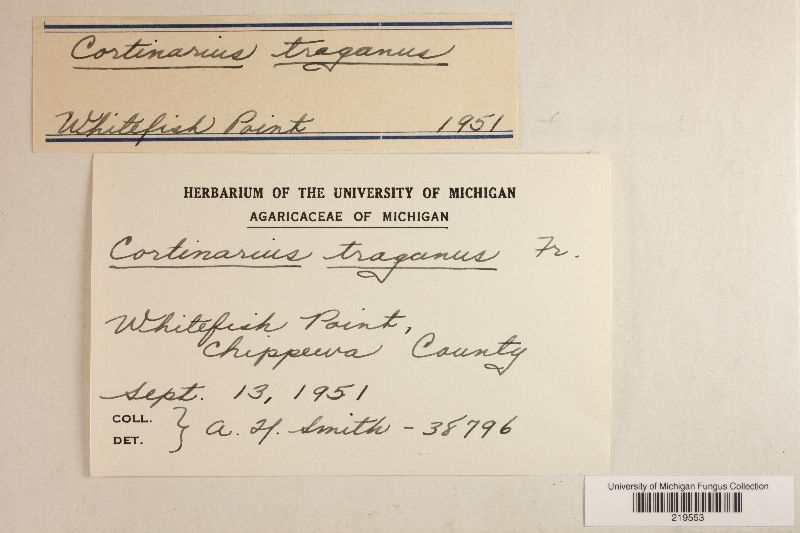 Cortinarius traganus
Whitefish Point 1951
HERBARIUM OF THE UNIVERSITY OF MICHIGAN
AGARICACEAE OF MICHIGAN
Cortinarius traganus Fr.
Whitefish Point,
Chippewa County
Sept. 13, 1951
COLL.
DET. } A. H. Smith - 38796
University of Michigan Fungus Collection
219553